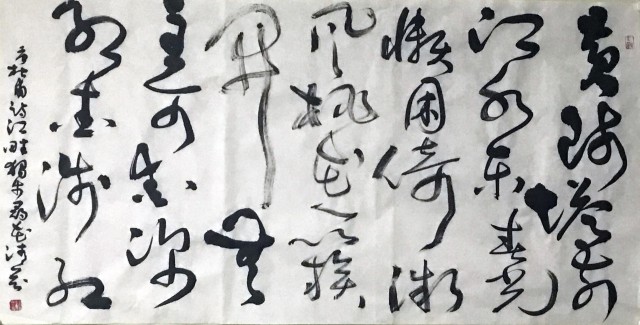 黄师塔前
江水东春光
懒困倚微
风桃花一簇
开无
主可爱深
红爱浅红
杜甫诗江畔独步寻花